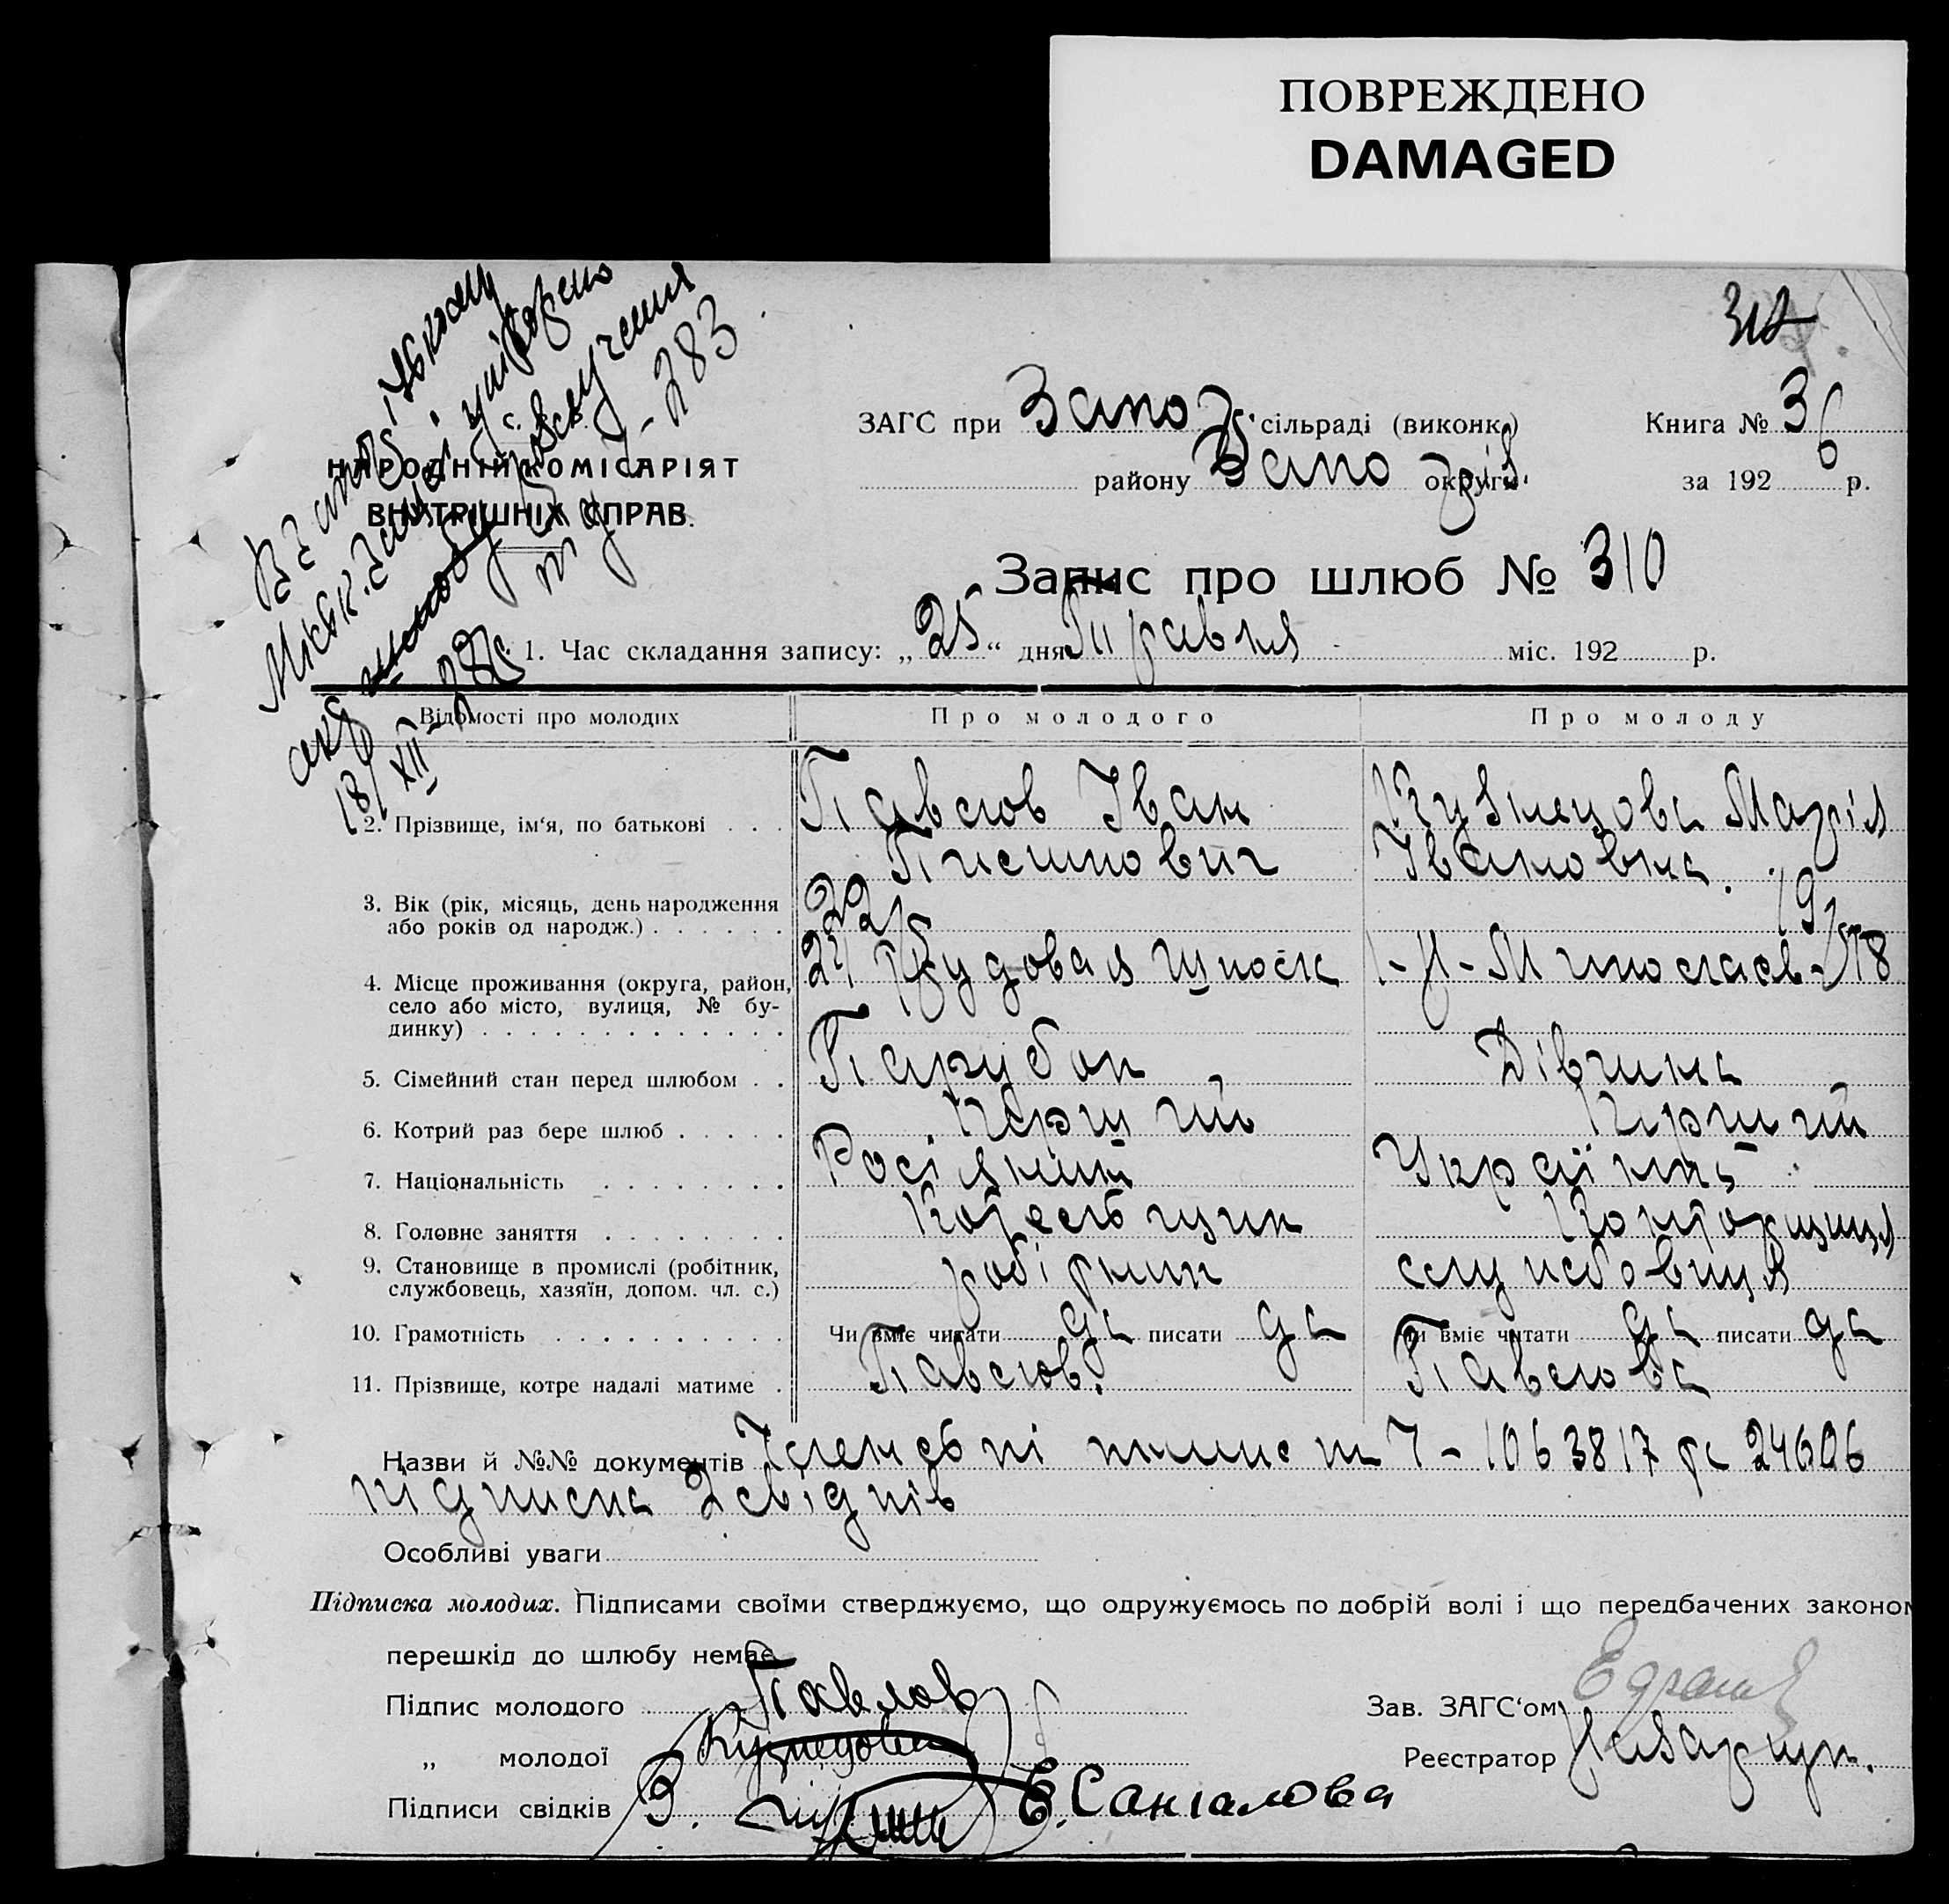 ПОВРЕЖДЕНО
DAMAGED
310
ЗАГС при Запор. сільраді (виконк.)
Книга № 3
району Запоріз. округи
за 1926 р.
с. с. р.
НАРОДНІЙ КОМІСАРІЯТ
ВНУТРІШНІХ СПРАВ.
283
18/XII-28
Запис про шлюб № 310
1. Час складання запису: „25“ дня Травня міс. 192 р.
Відомості про молодих
Про молодого
Про молоду
2. Прізвище, ім‘я, по батькові
Павлов Іван
Кузнецова Марія
Івановна.
3. Вік (рік, місяць, день народження
або років од народж.)
22
19
4. Місце проживання (округа, район,
село або місто, вулиця, № бу-
динку)
5. Сімейний стан перед шлюбом
Парубок
Дівчина
6. Котрий раз бере шлюб
Перший
Перший
7. Національність
Росіянин
Українка
8. Головне заняття
Конторщиця
9. Становище в промислі (робітник,
службовець, хазяїн, допом. чл. с.)
робітник
службовиця
10. Грамотність
Чи вміє читати да писати да
Чи вміє читати да писати да
11. Прізвище, котре надалі матиме
Павлов.
Павлова
Назви й №№ документів Членські книжки 7-1063817 та 24606
підписка 2 свідків
Особливі уваги
Підписка молодих. Підписами своїми стверджуємо, що одружуємось по добрій волі і що передбачених законом
перешкід до шлюбу немає
Підпис молодого Павлов
Зав. ЗАГС‘ом
„ молодої Кузнецова
Реєстратор
Підписи свідків
Е. Сангалова